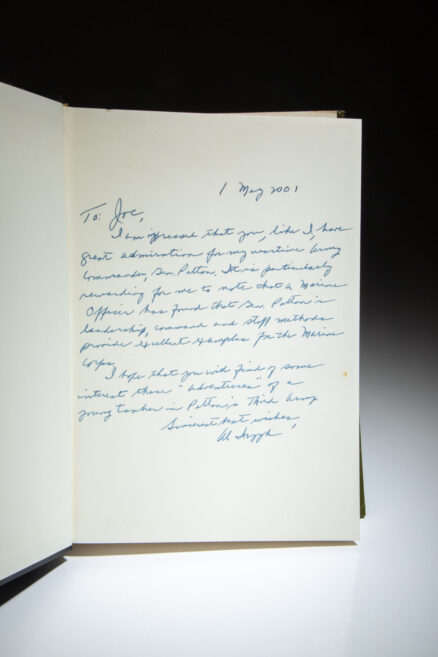 1 May 2001
To: Joe,
I am impressed that you, like I, have
great admiration for my wartime Army
Commander, Gen. Patton. It is particularly
rewarding for me to note that a Marine
Officer has found that Gen. Patton's
leadership, command and staff methods
provide excellent examples for the Marine
Corps.
I hope that you will find of some
interest these "adventures" of a
young tanker in Patton's Third Army
Sincerest best wishes,
Al